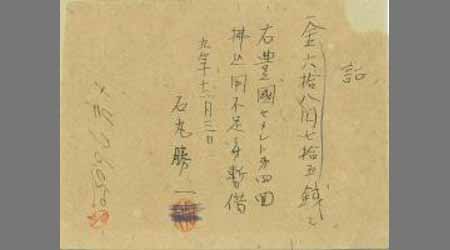 証
一金六拾八円七拾五銭也
右豊國セメント第四回
拂込回不足ニ付暫借
九年十二月三日
石丸勝一